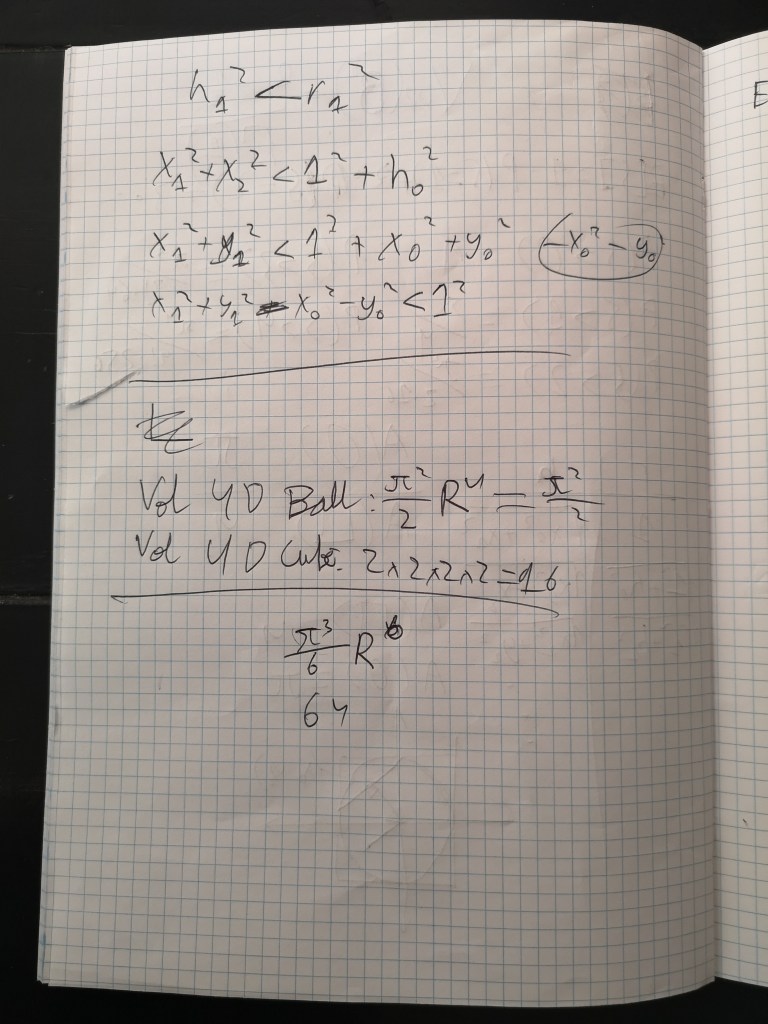 h₁² < r₁²
E
x₁² + x₂² < 1² + h₀²
x₁² + y₁² < 1² + x₀² + y₀² (-x₀² - y₀)
x₁² + y₁² - x₀² - y₀² < 1²
Vol 4D Ball: π²/2 R⁴ = π²/2
Vol 4D Cube: 2×2×2×2=16
π³/6 R⁶
64